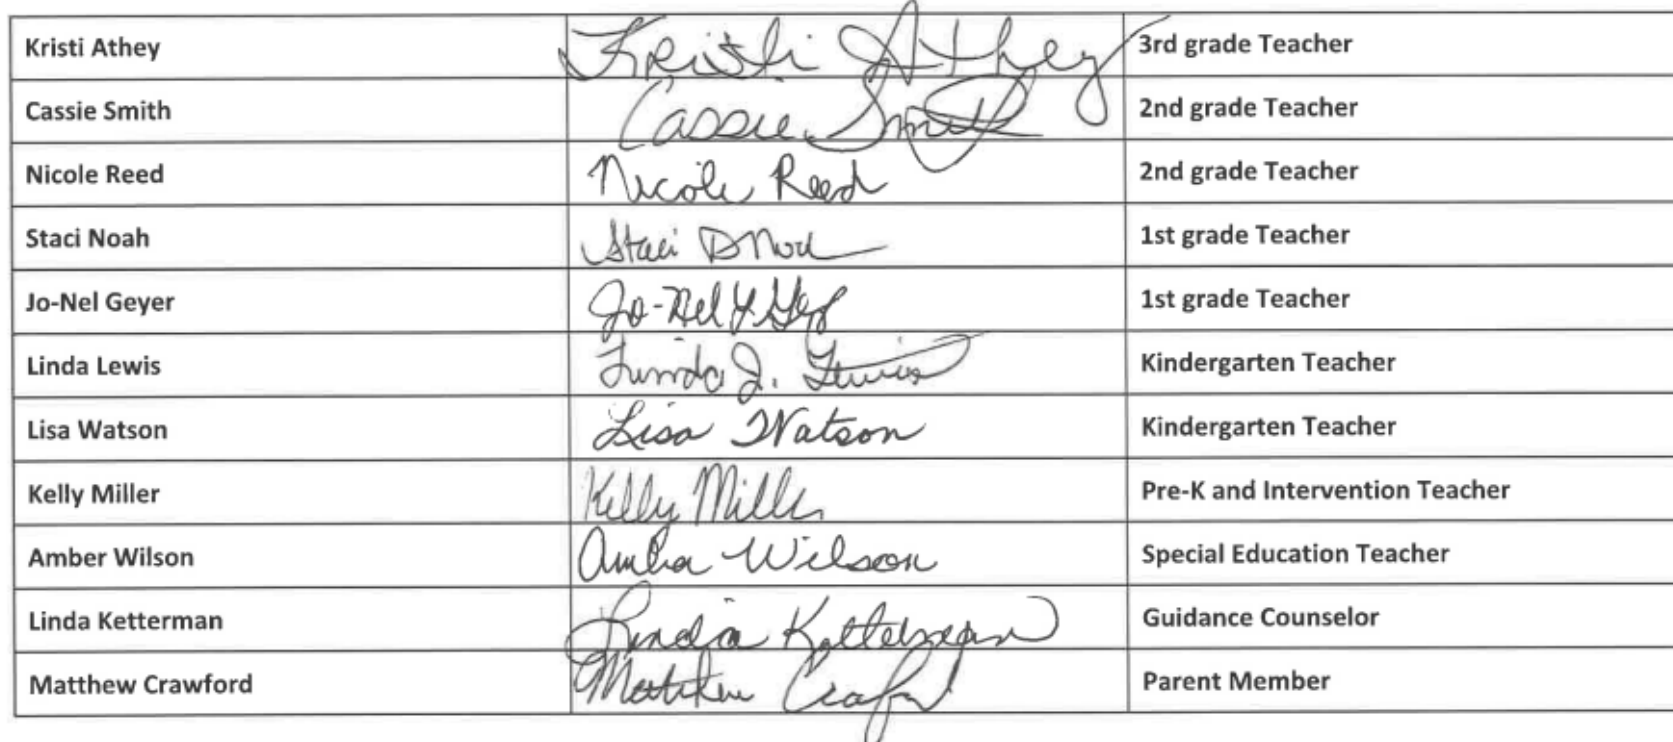 Kristi Athey Kristi Athey 3rd grade Teacher
Cassie Smith Cassie Smith 2nd grade Teacher
Nicole Reed Nicole Reed 2nd grade Teacher
Staci Noah Staci D Noah 1st grade Teacher
Jo-Nel Geyer Jo-Nel Y Geyer 1st grade Teacher
Linda Lewis Linda J. Lewis Kindergarten Teacher
Lisa Watson Lisa Watson Kindergarten Teacher
Kelly Miller Kelly Miller Pre-K and Intervention Teacher
Amber Wilson Amber Wilson Special Education Teacher
Linda Ketterman Linda Ketterman Guidance Counselor
Matthew Crawford Matthew Crawford Parent Member